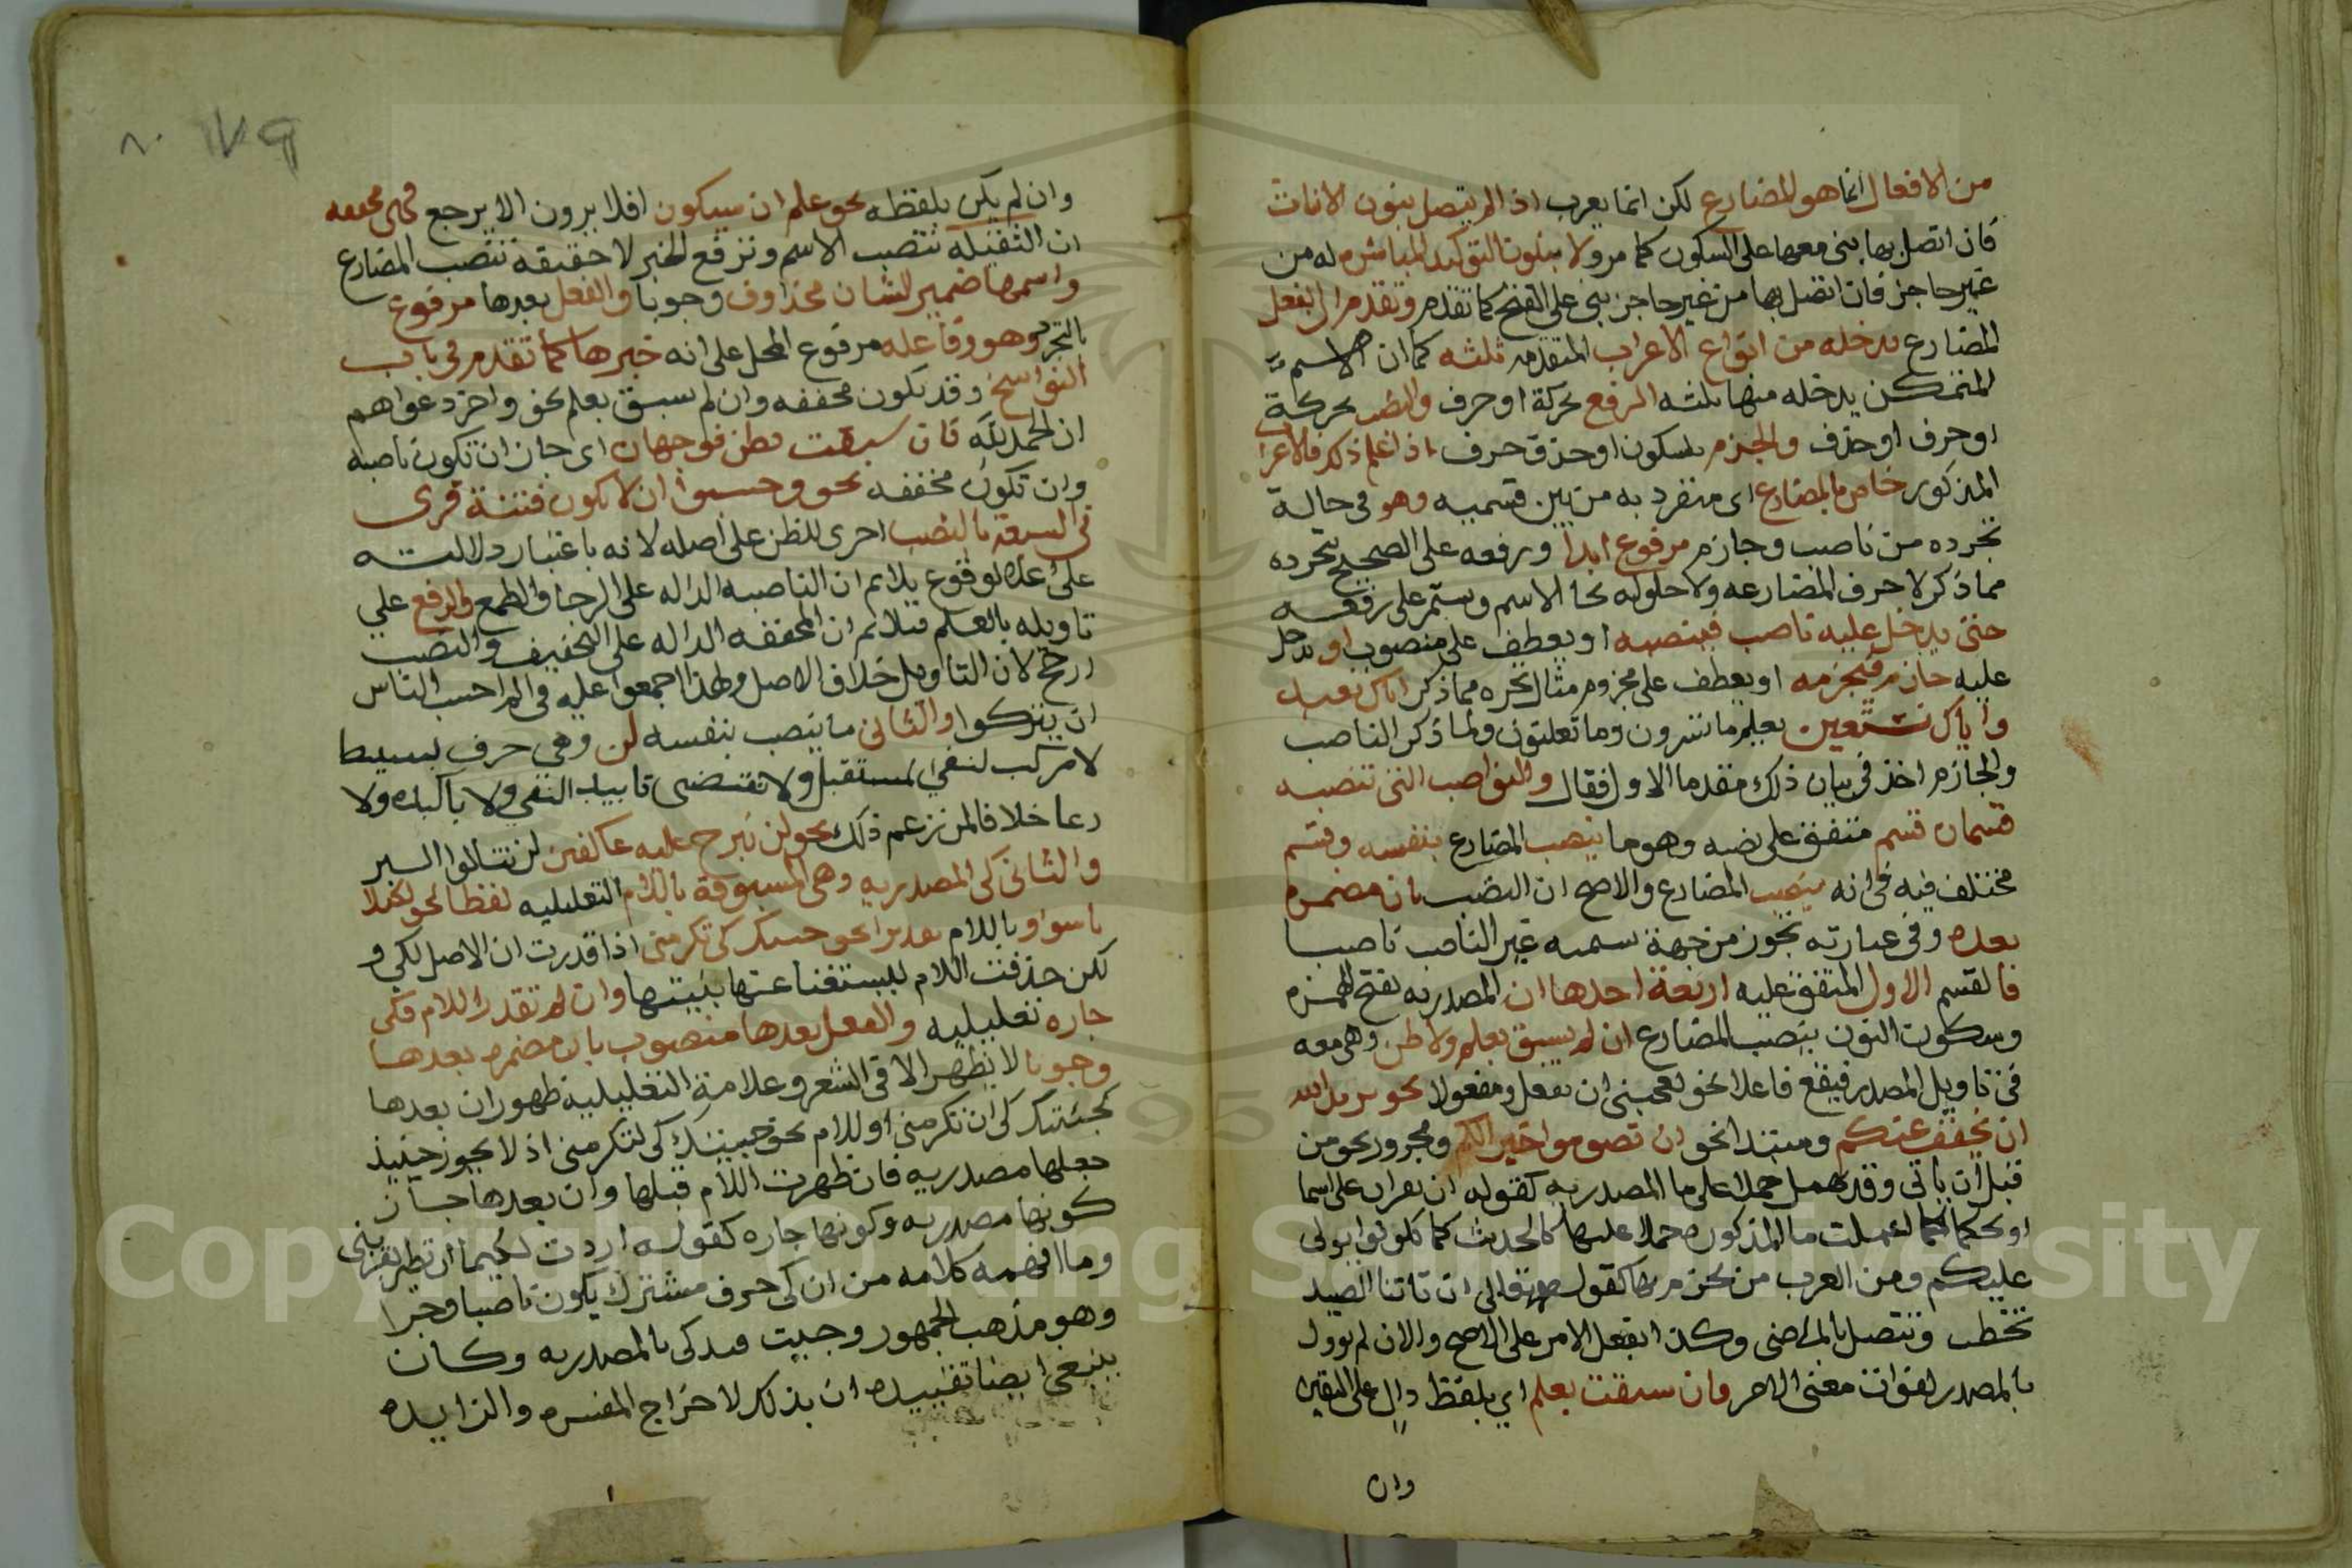 من الافعال انما هو للمضارع لكن انما يعرب اذا لم يتصل بنون الاناث
فان اتصل بها بنى معها على السكون كما مر ولا بنون التوكيد المباشره له من
غير حاجز فان اتصل بها من غير حاجز بنى على الفتح كما تقدم وتقدم ان الفعل
المضارع يدخله من انواع الاعراب المتقدمه ثلثه كما ان الاسم
المتمكن يدخله منها ثلثه الرفع بحركة او حرف والنصب بحركة
او حرف او حذف والجزم بسكون او حذف حرف اذا علم ذلك فالاعرا
المذكور خاص بالمضارع اى منفرد به من بين قسميه وهو فى حالة
تجرده من ناصب وجازم مرفوع ابدا ورفعه على الصحيح بتجرده
مما ذكر لا حرف المضارعه ولا حلوله محل الاسم ويستمر على رفعه
حتى يدخل عليه ناصب فينصبه او يعطف على منصوب او يدخل
عليه جازم فيجزمه او يعطف على مجزوم مثال تجرده مما ذكر اياك نعبد
واياك نستعين يعلم ما تسرون وما تعلنون ولما ذكر الناصب
والجازم اخذ فى بيان ذلك مقدما الاول فقال والنواصب التى تنصبه
قسمان قسم متفق على نصبه وهو ما ينصب المضارع بنفسه وقسم
مختلف فيه فى انه ينصب المضارع والاصح ان النصب بان مضمره
بعده وفى عبارته تجوز من جهة تسميه غير الناصب ناصبا
فالقسم الاول المتفق عليه اربعة احدها ان المصدريه بفتح الهمزه
وسكون النون ينصب المضارع ان لم يسبق بعلم ولا ظن وهى معه
فى تاويل المصدر فيقع فاعلا نحو يعجبنى ان تفعل ومفعولا نحو يريد الله
ان يخفف عنكم ومبتدا نحو ان تصوموا خير لكم ومجرور نحو من
قبل ان ياتى وقد تهمل حملا على ما المصدريه كقوله ان تقران على اسما
او يحكما كما اعملت ما المذكوره حملا عليها كالحديث كما تكونوا يولى
عليكم ومن العرب من يجزم بها كقوله تعالى الى ان تاتنا الصيد
نحطب وتتصل بالماضى وكذا بفعل الامر على الاصح والا ان لم توول
بالمصدر لفوات معنى الامر فان سبقت بعلم اي بلفظ دال على اليقين
وان
وان لم يكن بلفظه نحو علم ان سيكون افلا يرون الا يرجع فهى مخففه
ان الثقيله تنصب الاسم وترفع الخبر لا خفيفة تنصب المضارع
واسمها ضمير الشان محذوف وجوبا والفعل بعدها مرفوع
بالتجرد وهو وفاعله مرفوع المحل على انه خبرها كما تقدم فى باب
النواسخ وقد تكون مخففه وان لم تسبق بعلم نحو واخر دعواهم
ان الحمد لله فان سبقت بظن فوجهان اى جاز ان تكون ناصبه
وان تكون مخففه نحو وحسبوا ان لا تكون فتنة قرى
فى السبعه بالنصب اجرى للظن على اصله لانه باعتبار دلالته
على عدم الوقوع يلائم ان الناصبه الداله على الرجا والطمع والرفع على
تاويله بالعلم فيلائم ان المخففه الداله على التخفيف والنصب
ارجح لان التاويل خلاف الاصل ولهذا اجمعوا عليه فى الم احسب الناس
ان يتركوا والثانى ما ينصب بنفسه لن وهى حرف بسيط
لا مركب لنفى المستقبل ولا تقتضى تابيد النفى ولا تاكيده ولا
دعا خلافا لمن زعم ذلك نحو لن نبرح عليه عاكفين لن تنالوا البر
والثانى كى المصدريه وهى المسبوقة باللام التعليليه لفظا نحو لكيلا
تاسوا وباللام تقديرا نحو جيتك كى تكرمنى اذا قدرت ان الاصل لكى و
لكن حذفت اللام للاستغنا عنها بنيتها وان لم تقدر اللام فكى
جاره تعليليه والفعل بعدها منصوب بان مضمره بعدها
وجوبا لا يظهر الا فى الشعر وعلامة التعليلية ظهور ان بعدها
كجئتك كى ان تكرمنى او اللام نحو جيتك كى لتكرمنى اذ لا يجوز حينيذ
جعلها مصدريه فان ظهرت اللام قبلها وان بعدها جاز
كونها مصدريه وكونها جاره كقوله اردت لكيما ان تطير بقربتى
وما افهمه كلامه من ان كى حرف مشترك يكون ناصبا وجرا
وهو مذهب الجمهور وحيث قيد كى بالمصدريه وكان
ينبغى ايضا تقييده ان بذلك لاخراج المفسره والزايده